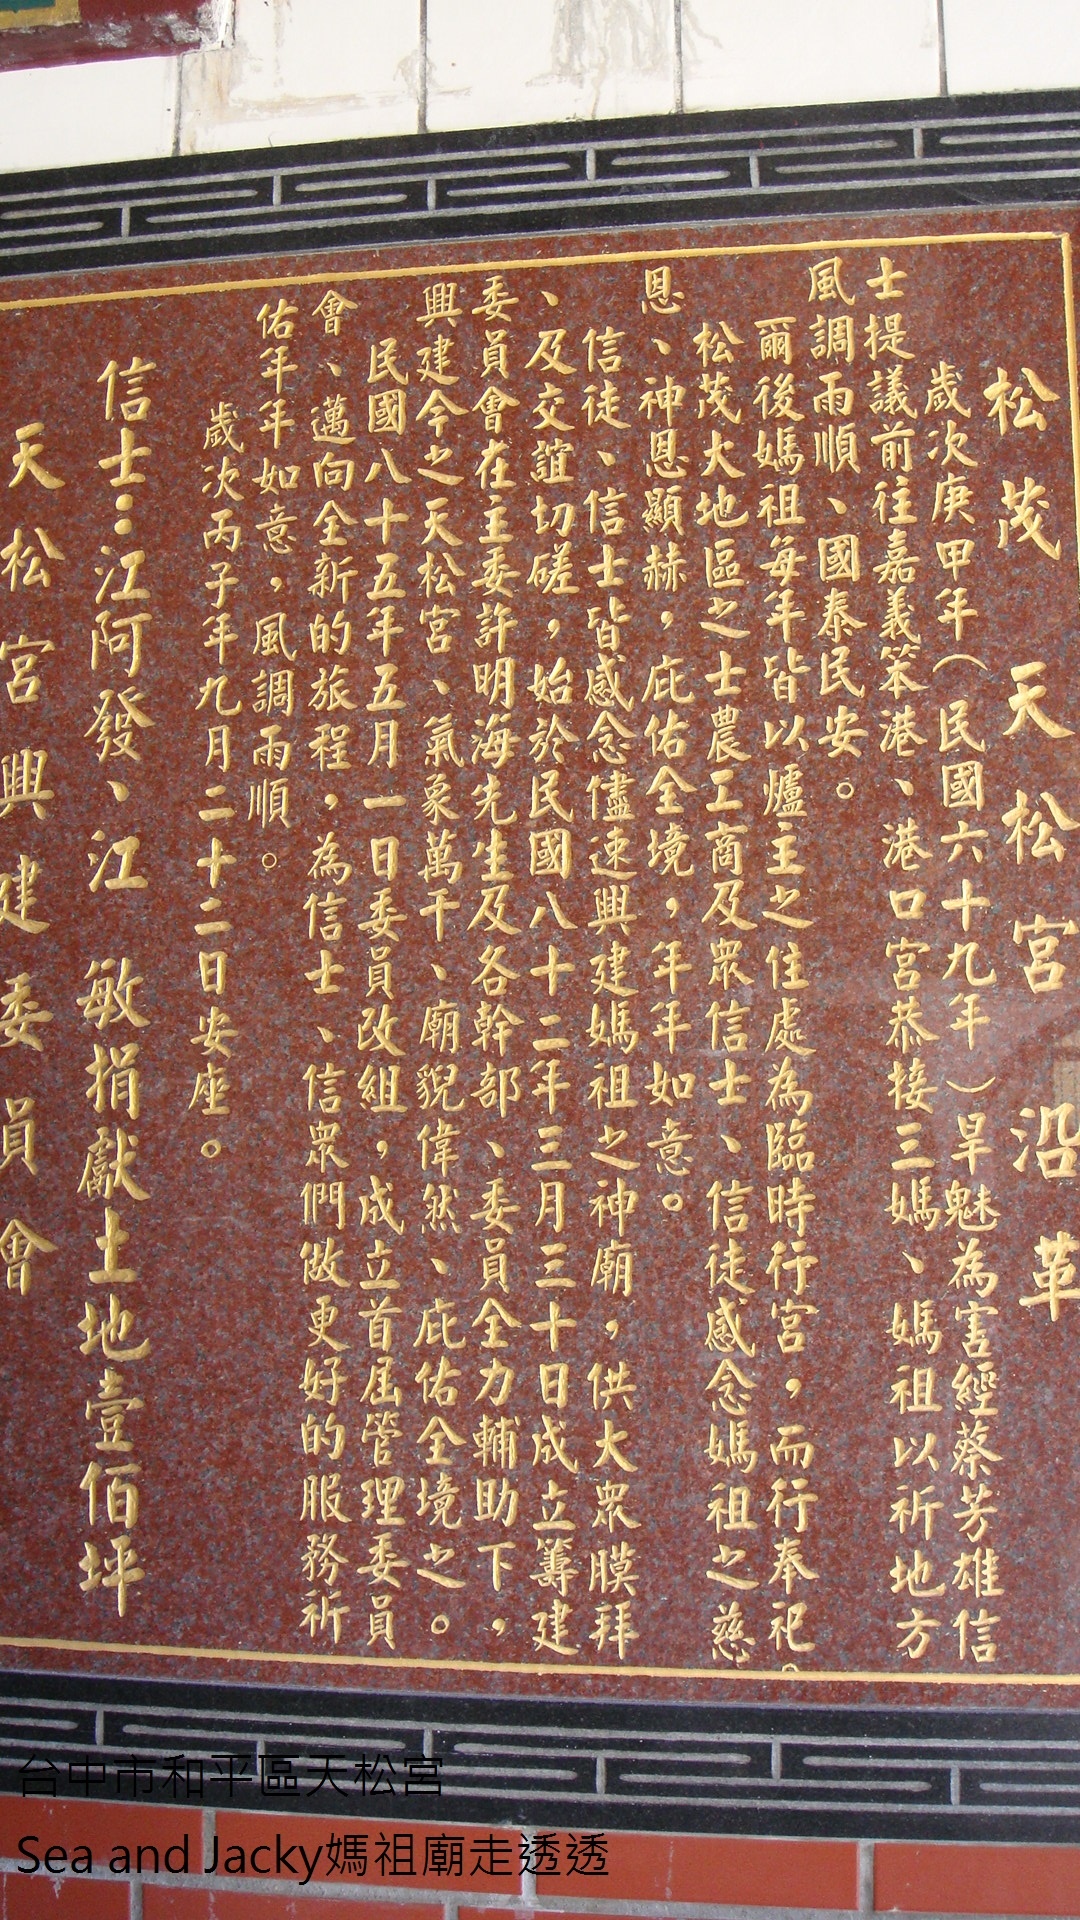 松茂天松宮沿革
歲次庚甲年（民國六十九年）旱魃為害經蔡芳雄信
士提議前往嘉義笨港、港口宮恭接三媽、媽祖以祈地方
風調雨順、國泰民安。
爾後媽祖每年皆以爐主之住處為臨時行宮，而行奉祀。
松茂大地區之士農工商及眾信士、信徒感念媽祖之慈
恩、神恩顯赫，庇佑全境，年年如意。
信徒、信士皆感念儘速興建媽祖之神廟，供大眾膜拜
、及交誼切磋，始於民國八十二年三月三十日成立籌建
委員會在主委許明海先生及各幹部、委員全力輔助下，
興建今之天松宮、氣象萬千、廟貌偉然、庇佑全境之。
民國八十五年五月一日委員改組，成立首屆管理委員
會、邁向全新的旅程，為信士、信眾們做更好的服務祈
佑年年如意，風調雨順。
歲次丙子年九月二十二日安座。
信士：江阿發、江敏捐獻土地壹佰坪
天松宮興建委員會
台中市和平區天松宮
Sea and Jacky媽祖廟走透透